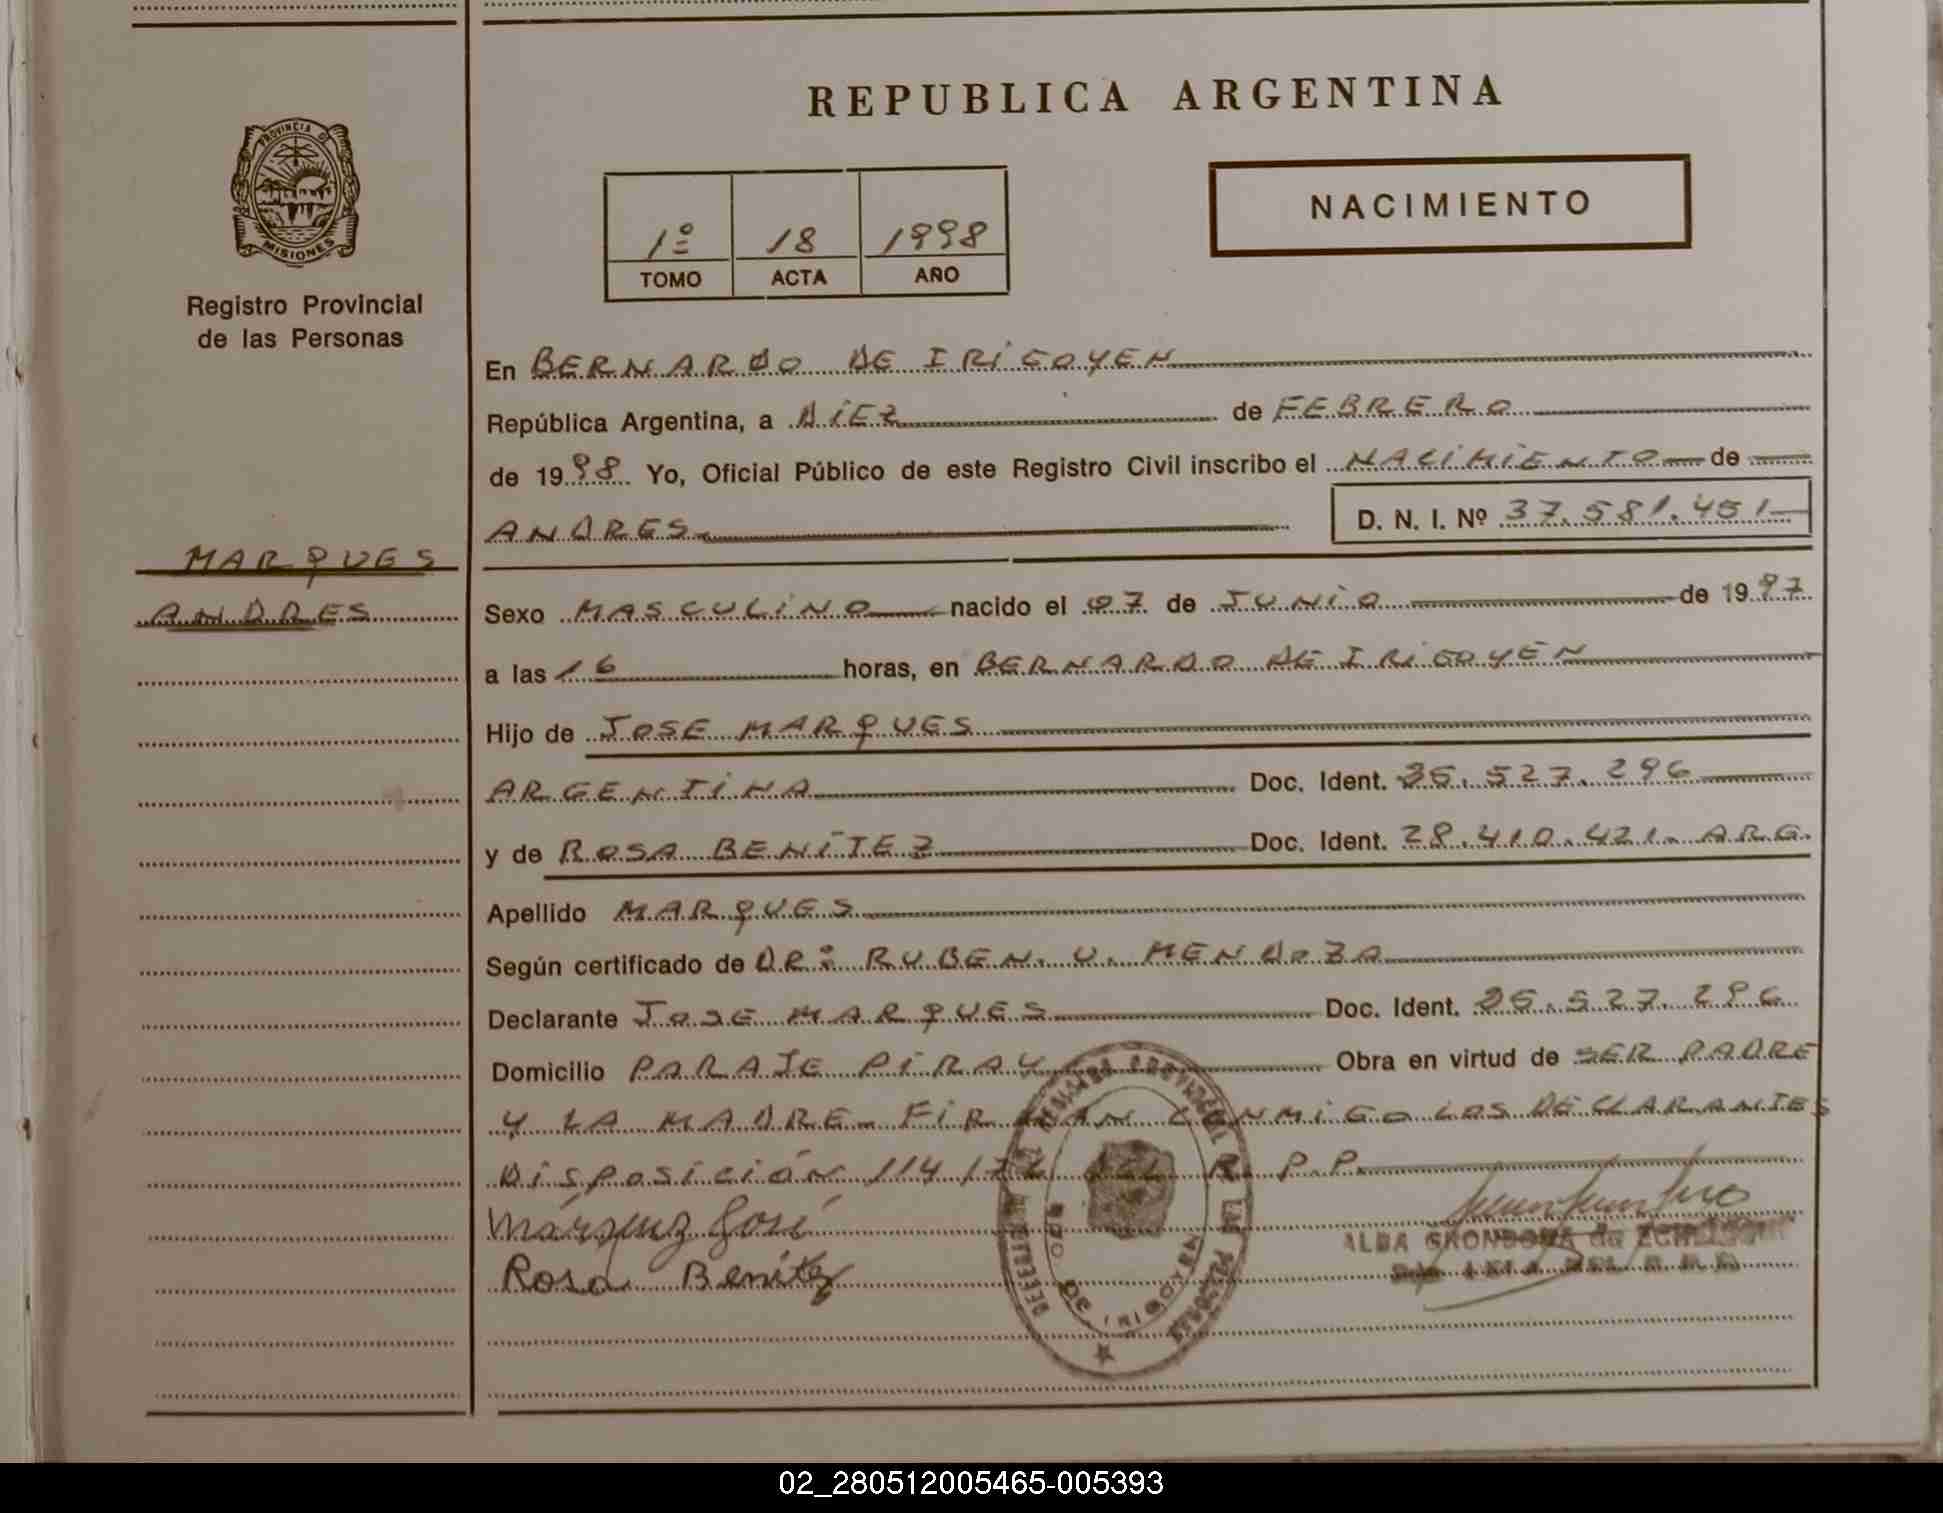 REPUBLICA ARGENTINA
PROVINCIA DE
MISIONES
Registro Provincial
de las Personas
1º 18 1998
TOMO ACTA AÑO
NACIMIENTO
En BERNARDO DE IRIGOYEN
República Argentina, a DIEZ de FEBRERO
de 1998 Yo, Oficial Público de este Registro Civil inscribo el NACIMIENTO de
ANDRES D. N. I. Nº 37.581.451
MARQUES
ANDRES
Sexo MASCULINO nacido el 07 de JUNIO de 1997
a las 16 horas, en BERNARDO DE IRIGOYEN
Hijo de JOSE MARQUES
ARGENTINA Doc. Ident. 25.527.296
y de ROSA BENITEZ Doc. Ident. 28.410.421. ARG.
Apellido MARQUES
Según certificado de DR: RUBEN. U. MENDOZA
Declarante JOSE MARQUES Doc. Ident. 25.527.296
Domicilio PARAJE PIRAY Obra en virtud de SER PADRE
Y LA MADRE FIRMAN CONMIGO LOS DECLARANTES
DISPOSICIÓN 114/ R. P.P.
Márquez José
Rosa Benítez
ALBA GRONDONA de
REGISTRO PROVINCIAL DE LAS PERSONAS
BDO DE IRIGOYEN
02_280512005465-005393